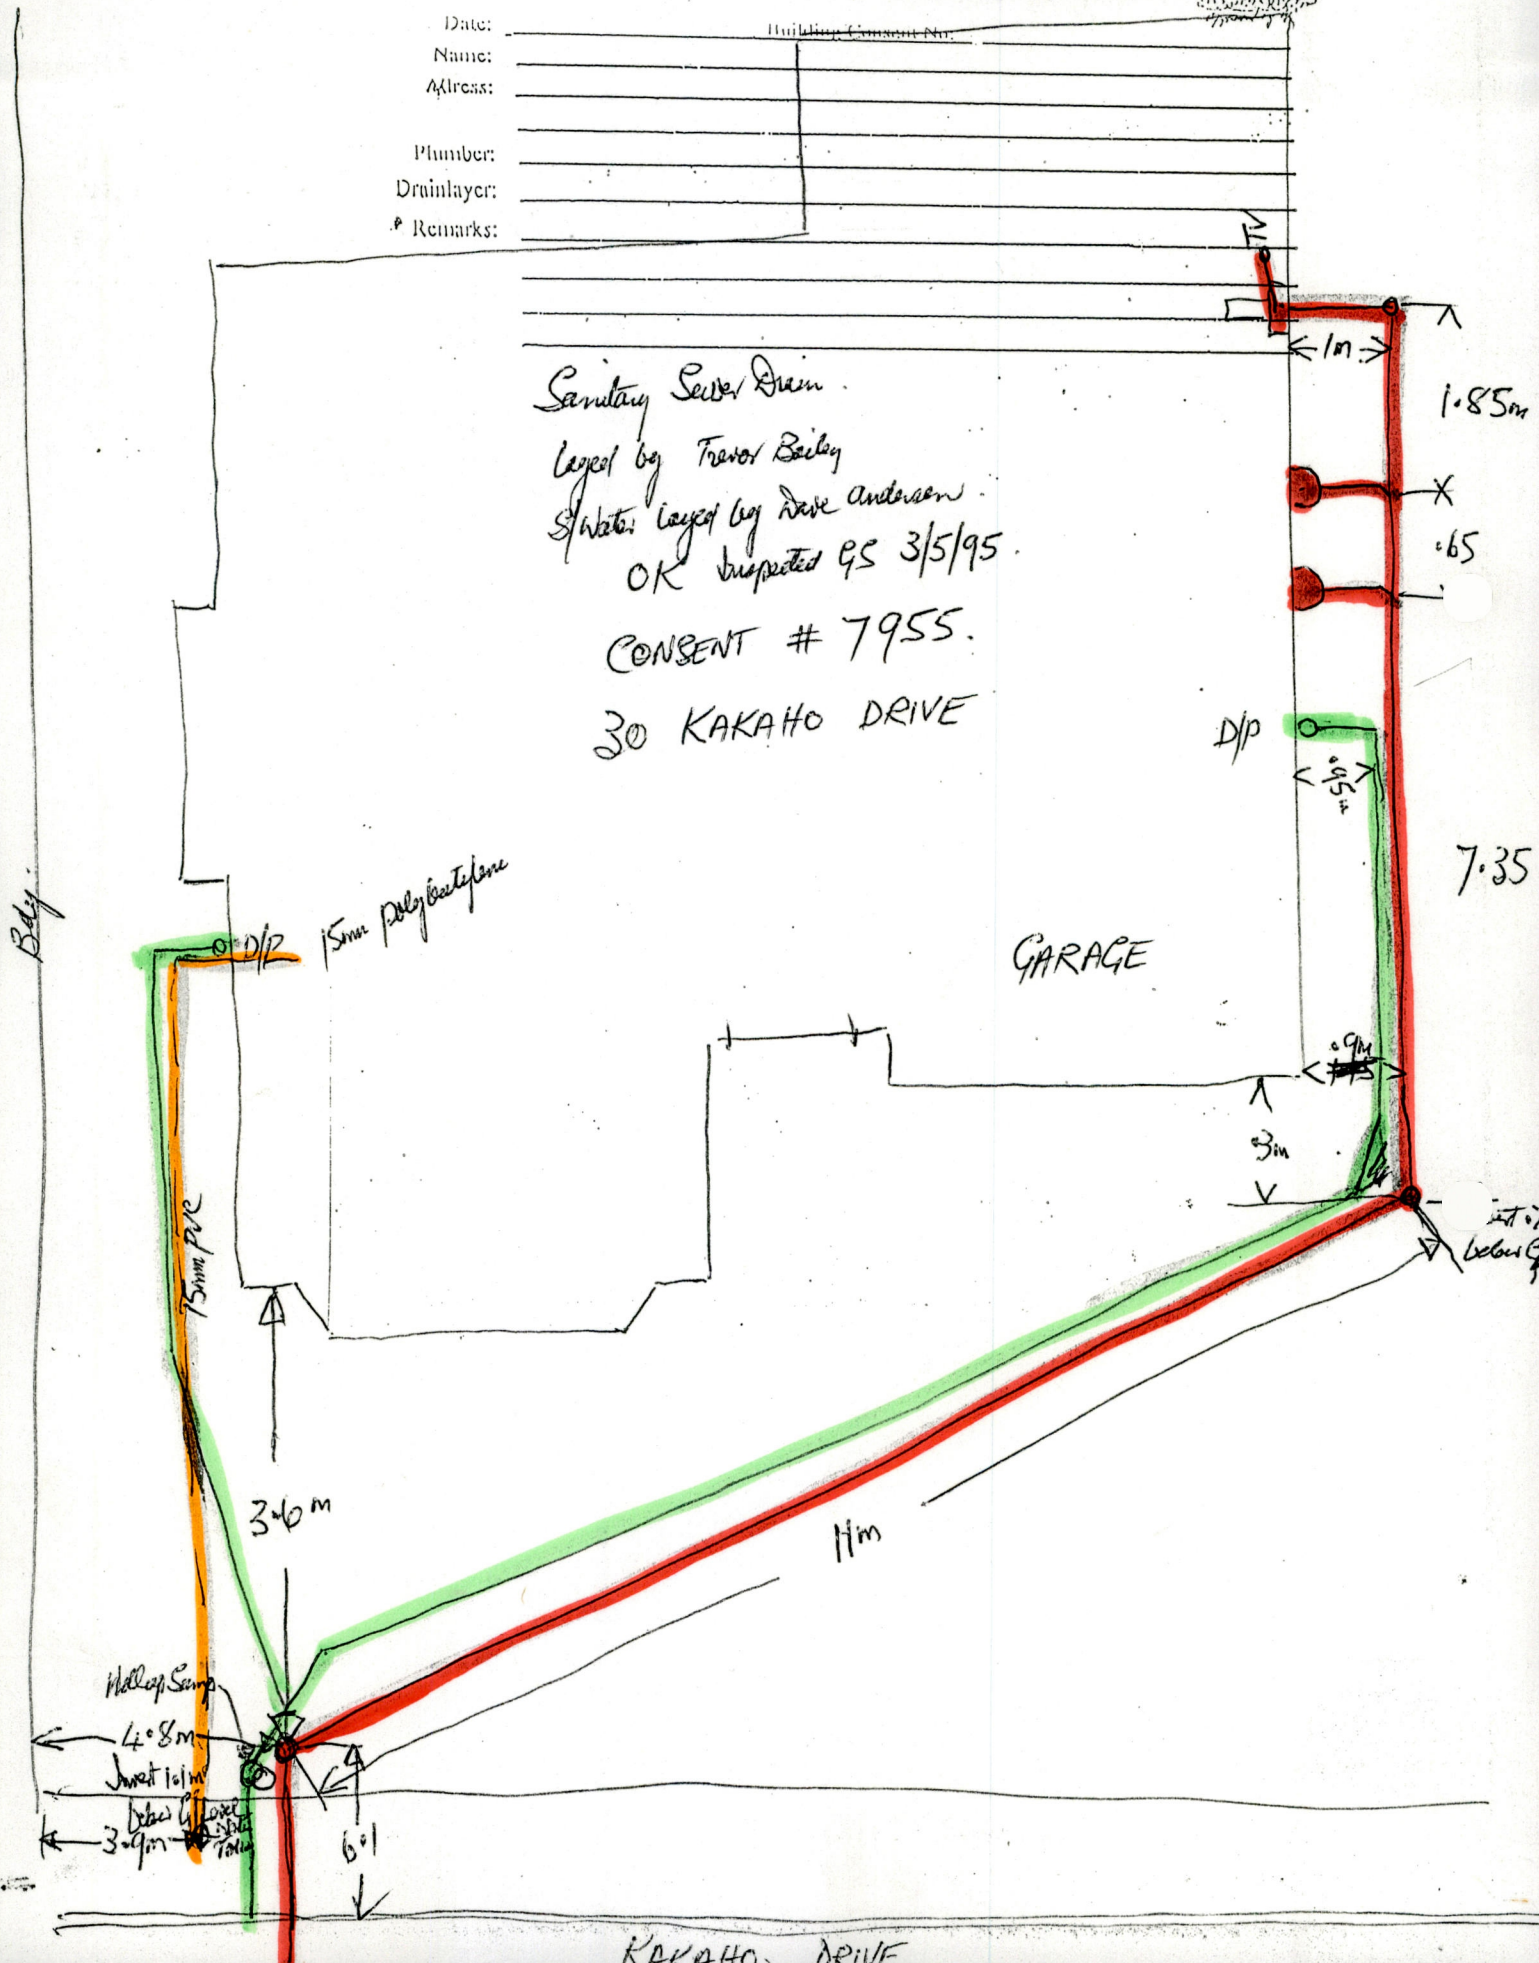 Date:
Building Consent No:
Name:
Address:
Plumber:
Drainlayer:
Remarks:
TV
1m
1.85m
Sanitary Sewer Drain.
layed by Trevor Bailey
S/Water layed by Dave Anderson.
OK Inspected GS 3/5/95.
.65
CONSENT # 7955.
30 KAKAHO DRIVE
D/P
.95m
7.35
Bdy.
D/P
15mm polybutylene
GARAGE
.9m
3m
below G
15mm PVC
3.6m
11m
Hillup Sump
4.8m
Invert 1.1m
below G Level
3.9m
6.1
KAKAHO DRIVE